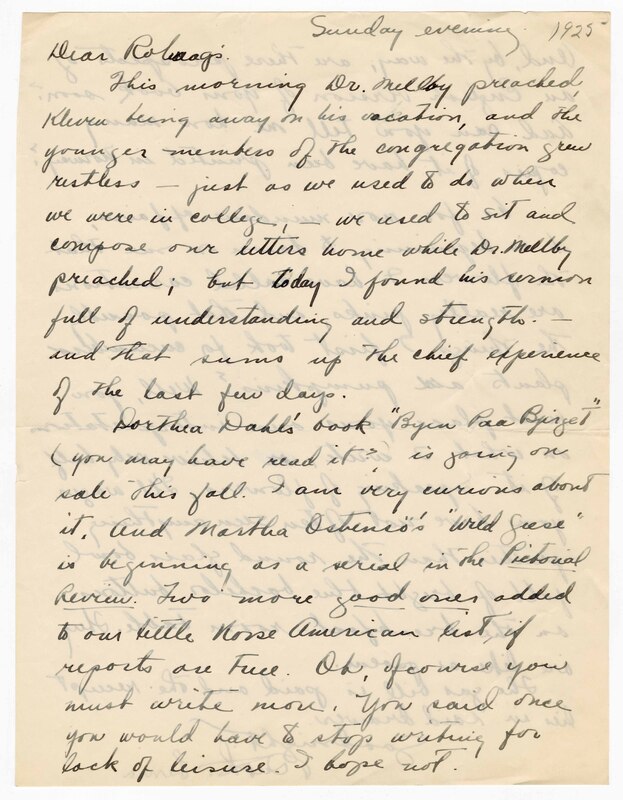 Sunday evening. 1925
Dear Rolvaags:
This morning Dr. Mellby preached,
Kleven being away on his vacation, and the
younger members of the congregation grew
restless — just as we used to do when
we were in college, — we used to sit and
compose our letters home while Dr. Mellby
preached; but today I found his sermon
full of understanding and strength. —
and that sums up the chief experience
of the last few days.
Dorthea Dahl's book "Byen Paa Bjerget"
(you may have read it?) is going on
sale this fall. I am very curious about
it. And Martha Ostenso's "Wild Geese"
is beginning as a serial in the Pictorial
Review. Two more good ones added
to our little Norse American list, if
reports are true. Oh, of course you
must write more. You said once
you would have to stop writing for
lack of leisure. I hope not.